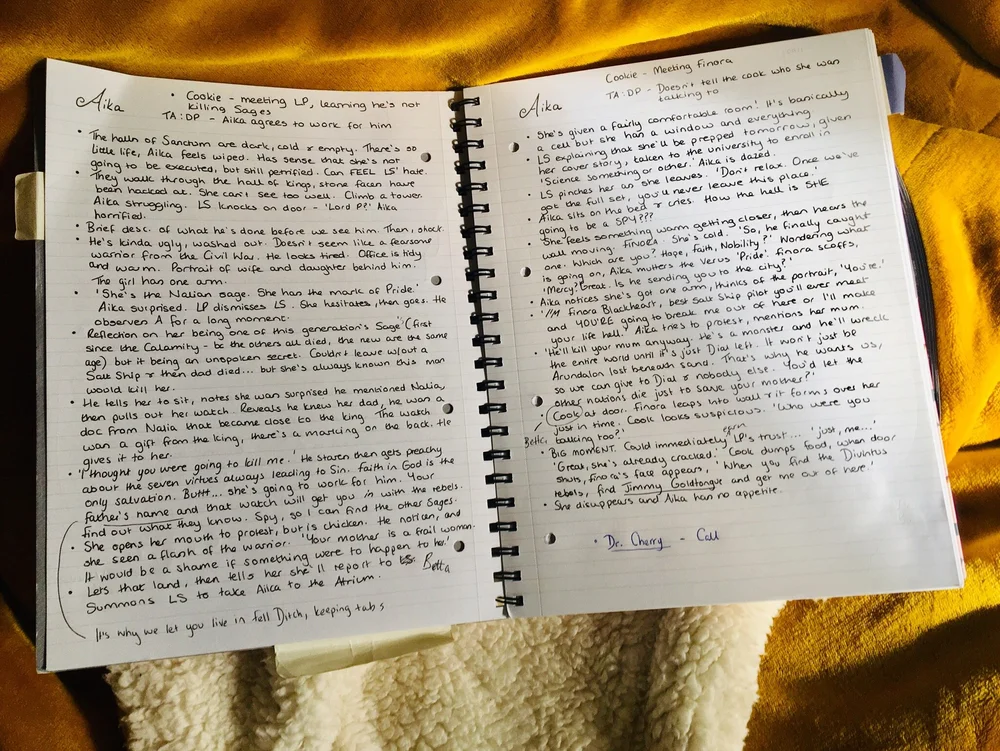 Aika
• Cookie - meeting LP, learning he's not
killing Sages
TA:DP - Aika agrees to work for him
• The halls of Sanctum are dark, cold & empty. There's so
little life, Aika feels wiped. Has sense that she's not
going to be executed, but still petrified. Can FEEL LS' hate.
• They walk through the hall of kings, stone faces have
been hacked at. She can't see too well. Climb a tower.
Aika struggling. LS knocks on door - 'Lord P?' Aika
horrified.
• Brief desc. of what he's done before we see him. Then, shock.
• He's kinda ugly, washed out. Doesn't seem like a fearsome
warrior from the Civil War. He looks tired. Office is tidy
and warm. Portrait of wife and daughter behind him.
The girl has one arm.
• 'She's the Nalian sage. She has the mark of Pride.'
Aika surprised. LP dismisses LS. She hesitates, then goes. He
observes A for a long moment.
• Reflection on her being one of this generation's Sage (first
since the Calamity - bc the others all died, the new are the same
age) but it being an unspoken secret. Couldn't leave without a
Salt Ship & then dad died... but she's always known this man
would kill her.
• He tells her to sit, notes she was surprised he mentioned Nalia,
then pulls out her watch. Reveals he knew her dad, he was a
doc from Nalia that became close to the king. The watch
was a gift from the king, there's a marking on the back. He
gives it to her.
• 'I thought you were going to kill me.' He stares then gets preachy
about the seven virtues always leading to Sin. faith in God is the
only salvation. Buttt... she's going to work for him. Your
father's name and that watch will get you in with the rebels.
find out what they know. Spy, so I can find the other Sages.
• She opens her mouth to protest, but is chicken. He notices, and
she sees a flash of the warrior. 'Your mother is a frail woman.
It would be a shame if something were to happen to her.'
• Lets that land, then tells her she'll report to LS. Betta
Summons LS to take Aika to the Atrium.
It's why we let you live in fell Ditch, keeping tabs
Aika
Cookie - Meeting finora
TA:DP - Doesn't tell the cook who she was
talking to
• She's given a fairly comfortable room! It's basically
a cell but she has a window and everything.
• LS explaining that she'll be prepped tomorrow, given
her cover story, taken to the university to enroll in
'Science something or other.' Aika is dazed.
• LS pinches her as she leaves. 'Don't relax. Once we've
got the full set, you'll never leave this place.'
• Aika sits on the bed & cries. How the hell is SHE
going to be a SPY???
• She feels something warm getting closer, then hears the
wall moving. FINORA. She's cold. 'So, he finally caught
one. Which are you? Hope, faith, Nobility?' Wondering what
is going on, Aika mutters the Verus 'Pride.' finora scoffs,
'Mercy? Great. Is he sending you to the city?'
• Aika notices she's got one arm, thinks of the portrait, 'You're.'
• 'I'M finora Blackheart, best Salt Ship pilot you'll ever meet
and YOU'RE going to break me out of here or I'll make
your life hell.' Aika tries to protest, mentions her mum.
• 'He'll kill your mum anyway. He's a monster and he'll wreck
the entire world until it's just Dial left. It won't just be
Arundalon lost beneath sand. That's why he wants us,
so we can give to Dial & nobody else. You'd let the
other nations die just to save your mother?'
• (Cook) at door. Finora leaps into wall & it forms over her
just in time. Cook looks suspicious. 'Who were you
talking too?'
Betta,
• BIG MOMENT. Could immediately earn LP's trust... 'just, me...'
• 'Great, she's already cracked.' Cook dumps food, when door
shuts, finora's face appears, 'When you find the Divintus
rebels, find Jimmy Goldtongue and get me out of here.'
• She disappears and Aika has no appetite.
• Dr. Cherry - Call